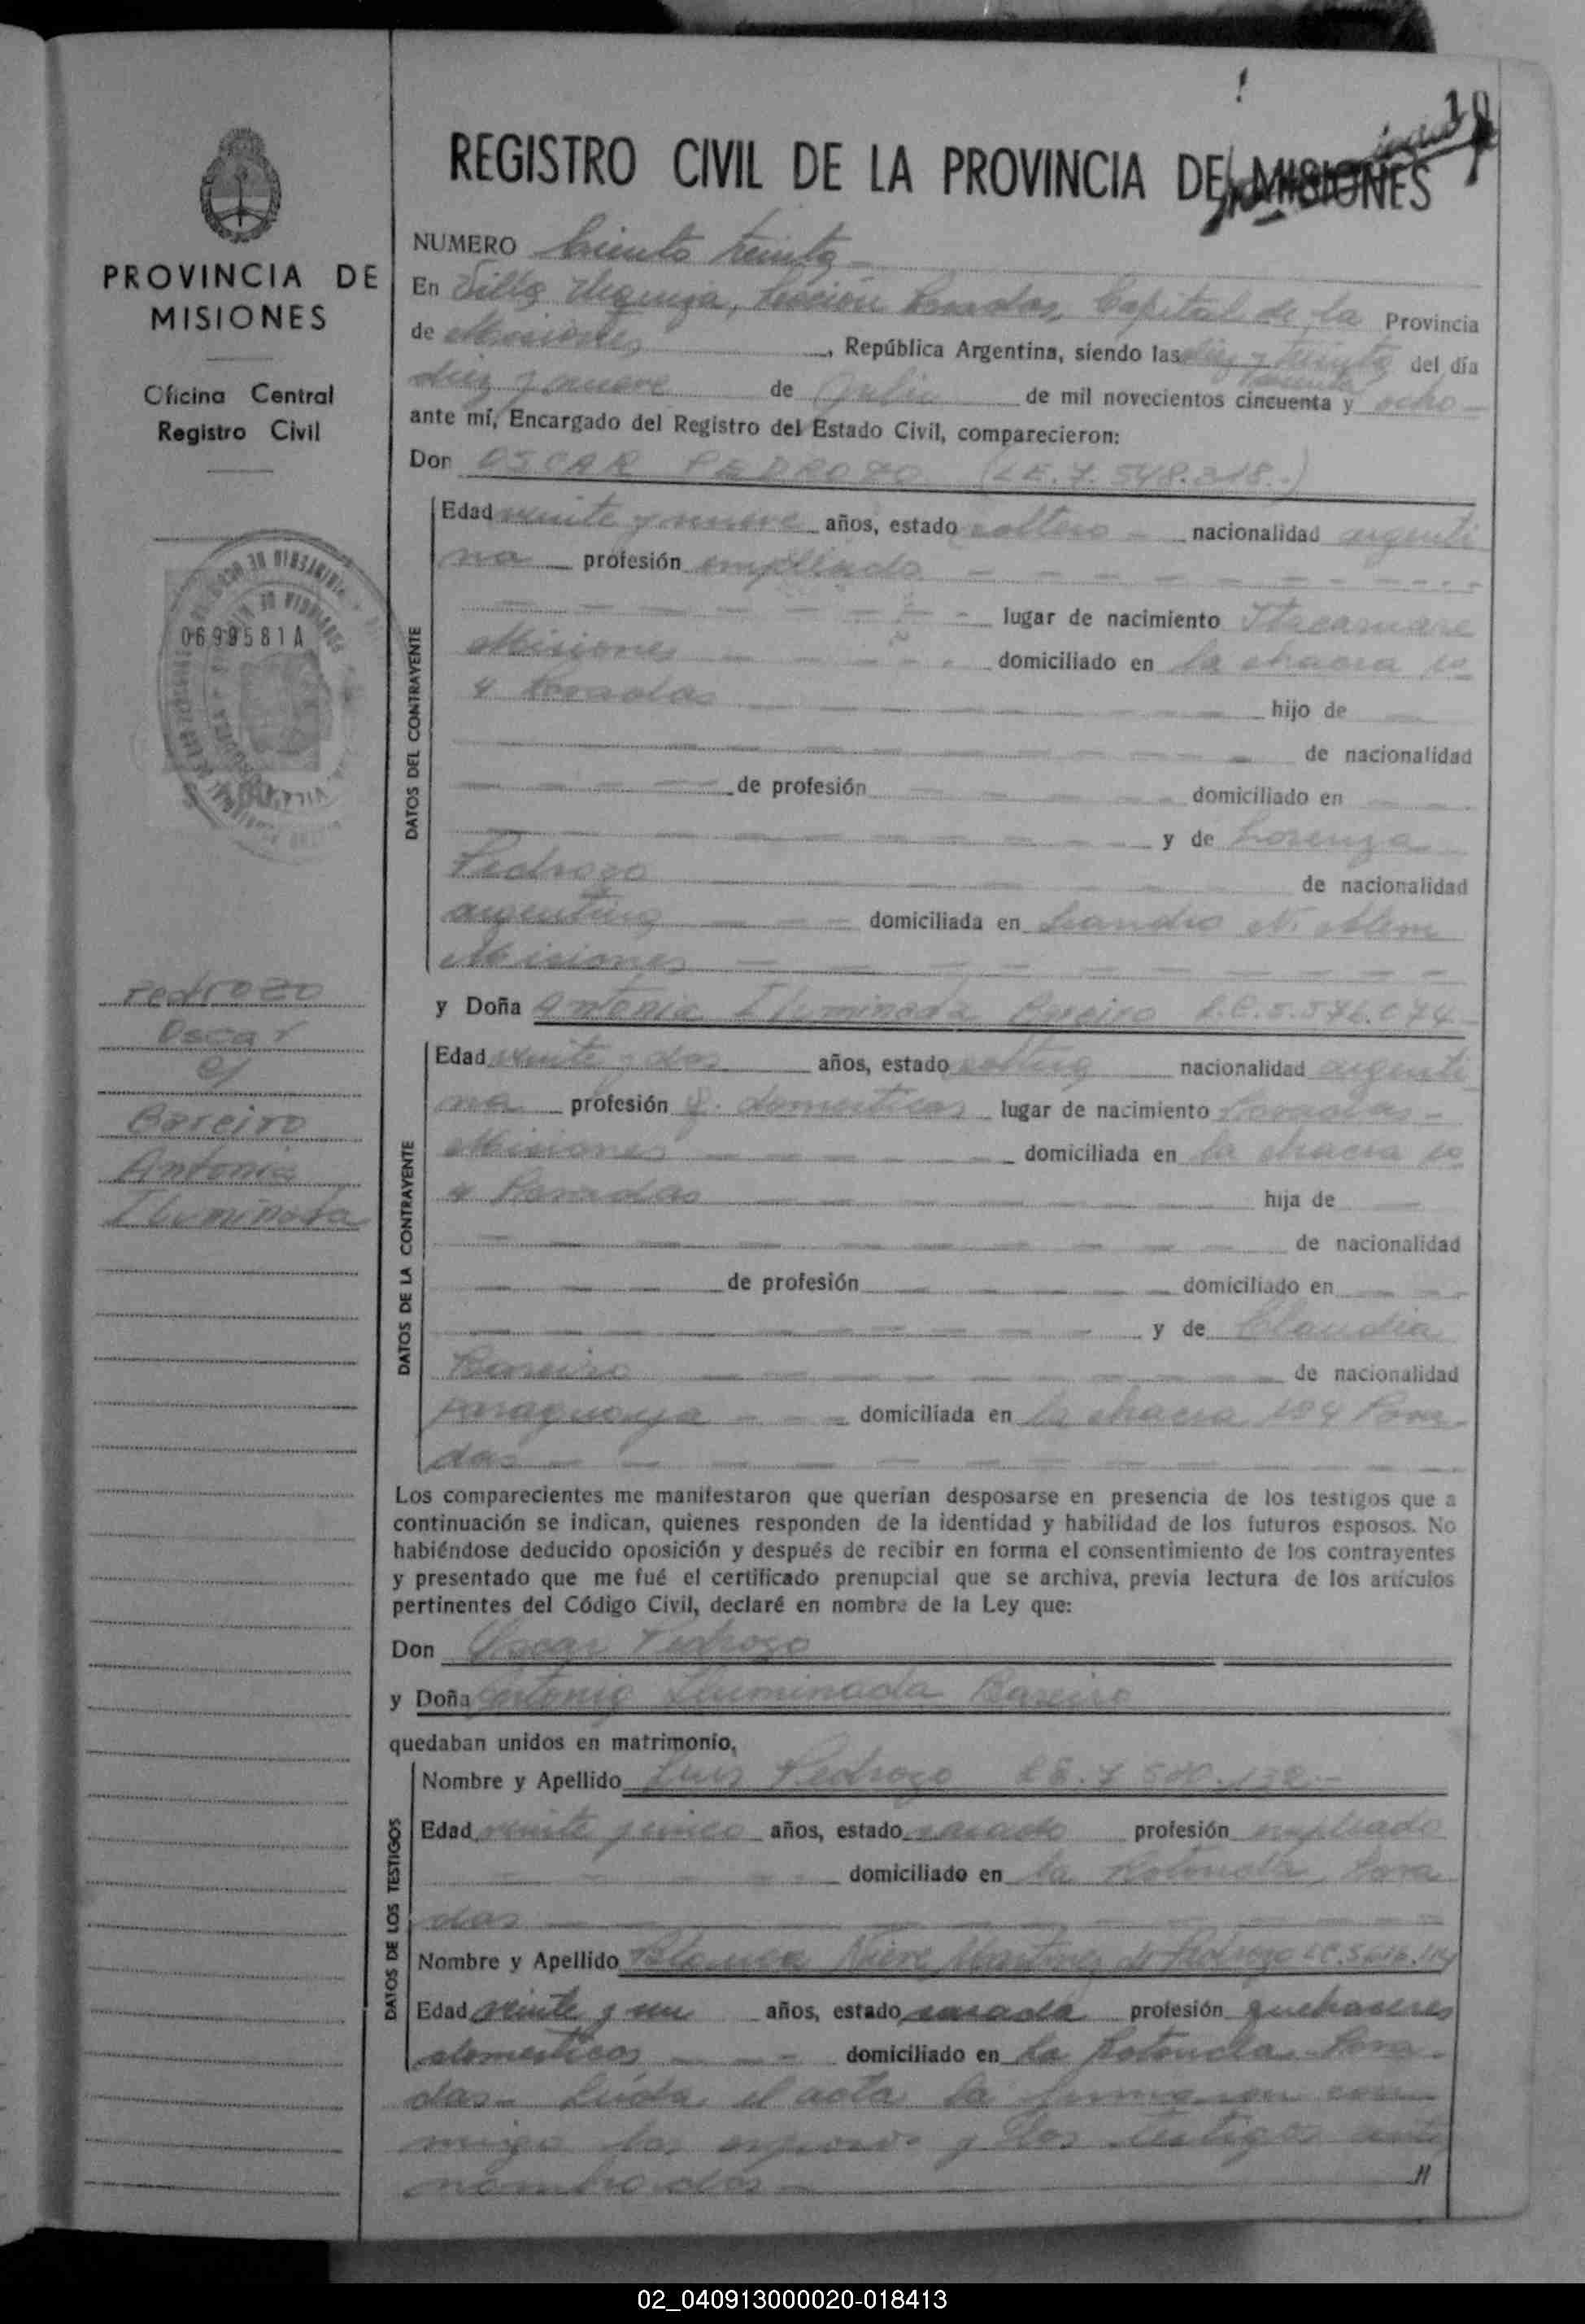 10
REGISTRO CIVIL DE LA PROVINCIA DE MISIONES
PROVINCIA DE
MISIONES
Oficina Central
Registro Civil
0699581A
Pedrozo
Oscar
c/
Bareiro
Antonia
Iluminada
NUMERO Ciento treinta
En Villa Urquiza, Sección Posadas, Capital de la Provincia
de Misiones, República Argentina, siendo las diez y treinta del día
diez y nueve de Julio de mil novecientos cincuenta y ocho
sesenta
ante mí, Encargado del Registro del Estado Civil, comparecieron:
Don OSCAR PEDROZO (L.E. 7.548.318.-)
DATOS DEL CONTRAYENTE
Edad veinte y nueve años, estado soltero nacionalidad argenti
na profesión empleado
lugar de nacimiento Itacaruare
Misiones domiciliado en la chacra no
4 Posadas hijo de
de nacionalidad
de profesión domiciliado en
y de Lorenza
Pedrozo de nacionalidad
argentina domiciliada en Leandro N. Alem
Misiones
y Doña Antonia Iluminada Bareiro L.C. 5.576.674
DATOS DE LA CONTRAYENTE
Edad veinte y dos años, estado soltera nacionalidad argenti
na profesión q. domesticos lugar de nacimiento Posadas
Misiones domiciliada en la chacra no
4 Posadas hija de
de nacionalidad
de profesión domiciliado en
y de Claudia
Bareiro de nacionalidad
paraguaya domiciliada en la chacra no 4 Posa
das
Los comparecientes me manifestaron que querían desposarse en presencia de los testigos que a
continuación se indican, quienes responden de la identidad y habilidad de los futuros esposos. No
habiéndose deducido oposición y después de recibir en forma el consentimiento de los contrayentes
y presentado que me fué el certificado prenupcial que se archiva, previa lectura de los artículos
pertinentes del Código Civil, declaré en nombre de la Ley que:
Don Oscar Pedrozo
y Doña Antonia Iluminada Bareiro
quedaban unidos en matrimonio,
DATOS DE LOS TESTIGOS
Nombre y Apellido Luis Pedrozo L.E. 7
Edad veinte y cinco años, estado casado profesión empleado
domiciliado en la Rotonda, Posa
das
Nombre y Apellido Blanca Nieve Martinez de Pedrozo L.C.
Edad veinte y un años, estado casada profesión quehaceres
domesticos domiciliado en La Rotonda Posa
das.- Leida el acta la firmaron con
migo los esposos y los testigos ante
nombrados
//
02_040913000020-018413